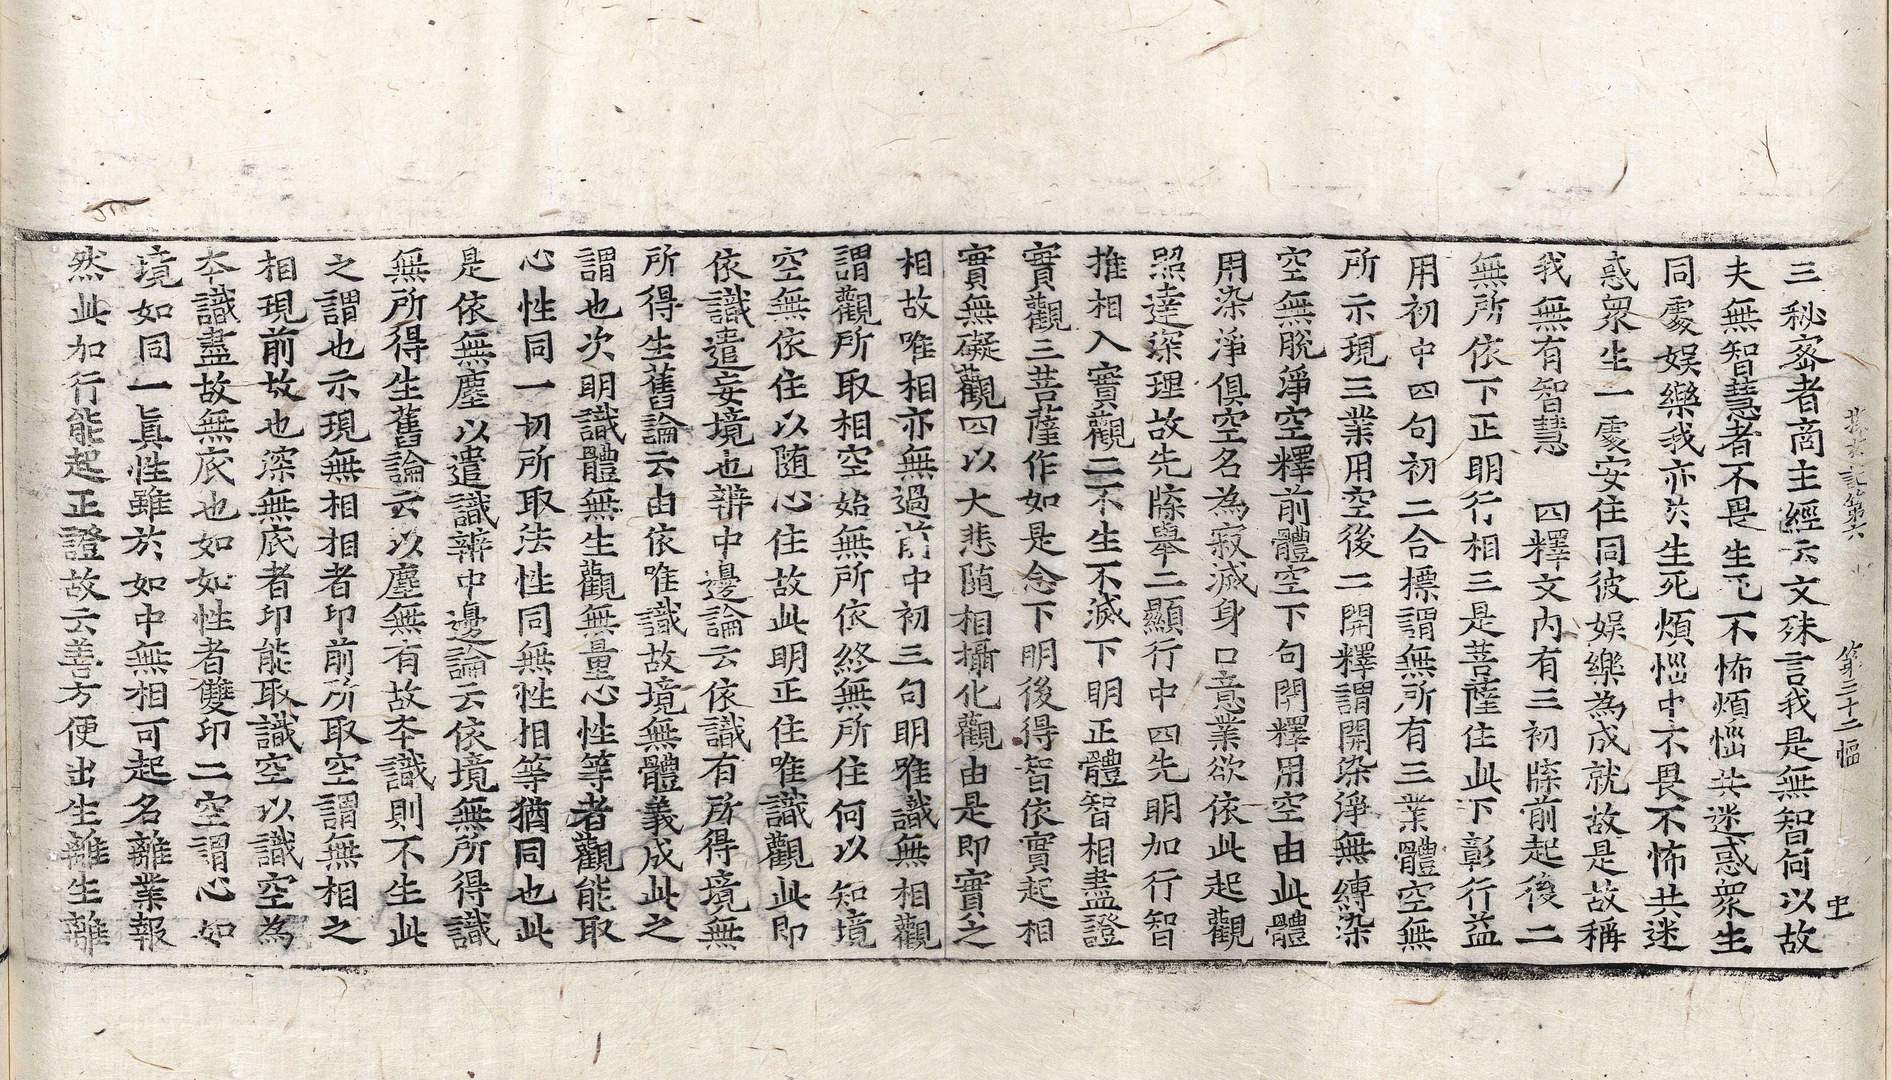 探玄記第六 第三十二幅 中
三秘密者商主經云文殊言我是無智何以故
夫無智慧者不畏生死不怖煩惱共迷惑衆生
同處娛樂我亦於生死煩惱中不畏不怖共迷
惑衆生一處安住同彼娛樂為成就故是故稱
我無有智慧 四釋文內有三初牒前起後二
無所依下正明行相三是菩薩住此下彰行益
用初中四句初二合標謂無所有三業體空無
所示現三業用空後二開釋謂開染淨無縛染
空無脫淨空釋前體空下句開釋用空由此體
用染淨俱空名為寂滅身口意業欲依此起觀
照達深理故先牒舉二顯行中四先明加行智
推相入實觀二不生不滅下明正體智相盡證
實觀三菩薩作如是念下明後得智依實起相
實無礙觀四以大悲隨相攝化觀由是即實之
相故唯相亦無過前中初三句明唯識無相觀
謂觀所取相空始無所依終無所住何以知境
空無依住以随心住故此明正住唯識觀此即
依識遣妄境也辨中邊論云依識有所得境無
所得生舊論云由依唯識故境無體義成此之
謂也次明識體無生觀無量心性等者觀能取
心性同一切所取法性同無性相等猶同也此
是依無塵以遣識辨中邊論云依境無所得識
無所得生舊論云以塵無有故夲識則不生此
之謂也示現無相相者印前所取空謂無相之
相現前故也深無底者印能取識空以識空為
夲識盡故無底也如如性者雙印二空謂心如
境如同一眞性雖於如中無相可起名離業報
然此加行能起正證故云善方便出生離生離